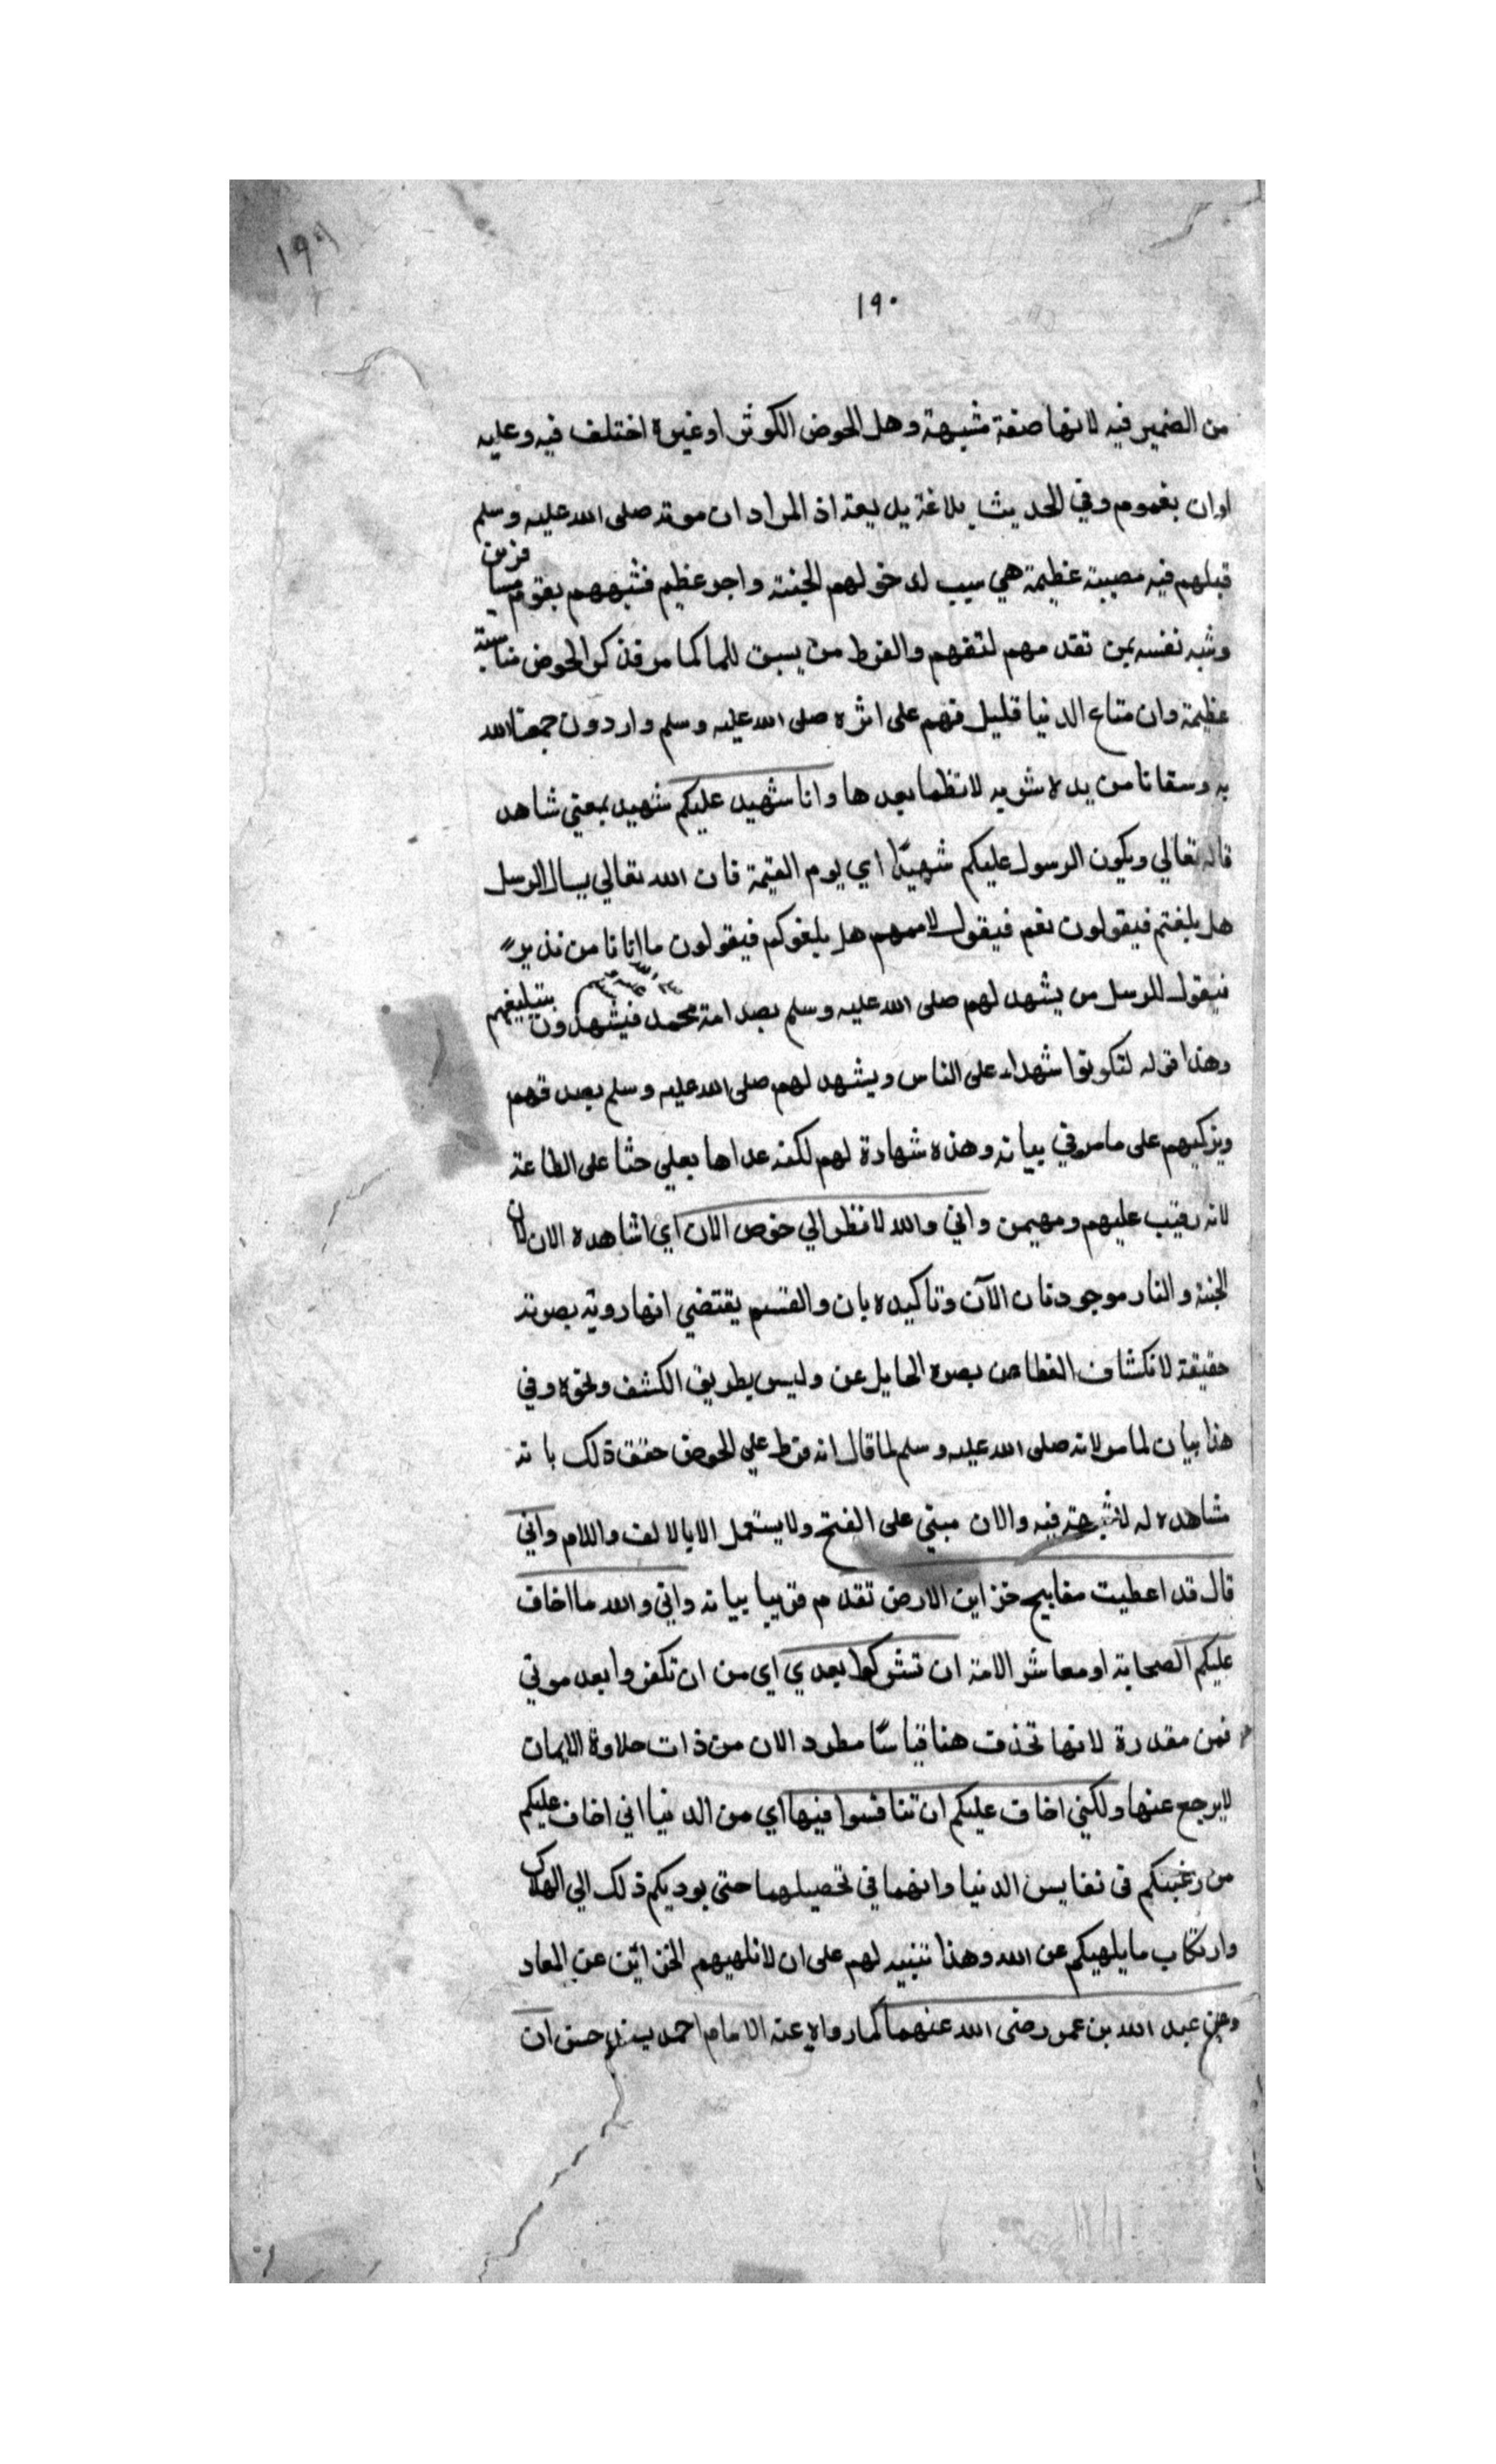 ١٩٩
١٩٠
من الضمير فيه لانها صفة مشبهة وهل الحوض الكوثر او غيره اختلف فيه وعليه
اوان بعموم وفي الحديث بلاغة بديعة اذ المراد ان موته صلى الله عليه وسلم
قبلهم فيه مصيبة عظيمة هي سبب لدخولهم الجنة واجر عظيم فشبههم بقوم
وشبه نفسه بمن تقدمهم لتفهم والفرط من يسبق للما كما مر فذكر الحوض مناسبة
عظيمة وان متاع الدنيا قليل فهم على اثره صلى الله عليه وسلم واردون جمعنا الله
به وسقانا من يده شربه لا نظما بعدها وانا شهيد عليكم شهيد بمعني شاهد
قال تعالي ويكون الرسول عليكم شهيدًا اي يوم القيمة فان الله تعالي يسال الرسل
هل بلغتم فيقولون نعم فيقول لاممهم هل بلغوكم فيقولون ما اتانا من نذير
فيقول للرسل من يشهد لهم صلى الله عليه وسلم بصد امة محمد فيشهدون بتبليغهم
وهذا قوله لتكونوا شهداء على الناس ويشهد لهم صلى الله عليه وسلم بصدقهم
ويزكيهم على ما مر في بيانه وهذه شهادة لهم لكنه عداها بعلي حثا على الطاعة
لانه رقيب عليهم ومهيمن واني والله لانظر الي حوض الان اي اشاهده الان لان
الجنة والنار موجودتان الآن وتاكيده بان والقسم يقتضي انها روية بصرية
حقيقة لانكشاف الغطا عن بصره الحايل عن وليس بطريق الكشف ونحوه وفي
هذا بيان لما مر لانه صلى الله عليه وسلم لما قال انه فرط علي الحوض حقق ذلك بانه
مشاهده له لا شبهة فيه والان مبني على الفتح ولا يستعمل الا بالالف واللام واني
قال قد اعطيت مفاتيح خزاين الارض تقدم قريبا بيانه واني والله ما اخاف
عليكم الصحابة او معاشر الامة ان تشركوا بعدي اي من ان تكفروا بعد موتي
فمن مقدرة لانها تحذف هنا قياسًا مطرد الان من ذات حلاوة الايمان
لا يرجع عنها ولكني اخاف عليكم ان تنافسوا فيها اي من الدنيا اني اخاف عليكم
من رغبتكم في نفايس الدنيا وانهما في تحصيلها حتى يوديكم ذلك الي الهلاك
وارتكاب ما يلهيكم عن الله وهذا تنبيه لهم على ان لا تلهيهم الخزائن عن المعاد
وعن عبد الله بن عمر رضى الله عنهما كما رواه عنه الامام احمد بسند حسن ان